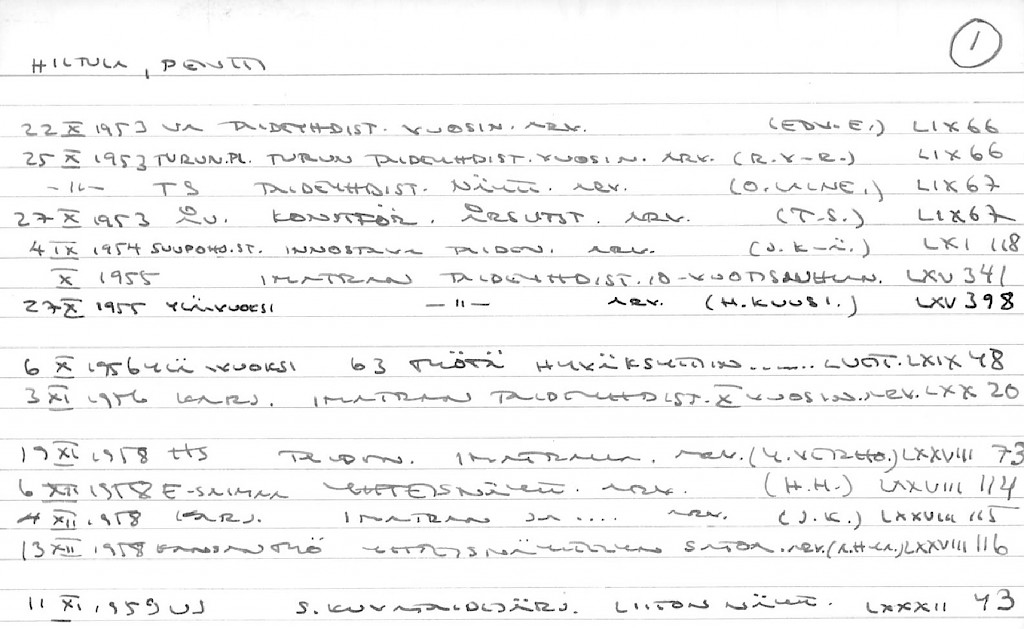 1
HILTULA, PENTTI
22 X 1953 UA TAIDEYHDIST. VUOSIN. ARV. (EDV. E.) LIX 66
25 X 1953 TURUN.PL. TURUN TAIDEYHDIST. VUOSIN. ARV. (R. V-R.) LIX 66
-"- TS TAIDEYHDIST. NÄYTT. ARV. (O. LAINE.) LIX 67
27 X 1953 ÅU. KONSTFÖR. ÅRSUTST. ARV. (T-S.) LIX 67
4 IX 1954 SUUPOHJ.ST. INNOSTAVA TAIDEN. ARV. (J. K-Ä.) LXI 118
X 1955 IMATRAN TAIDEYHDIST. 10-VUOTISJUHLAN. LXV 341
27 X 1955 YLÄ-VUOKSI -"- ARV. (H. KUUSI.) LXV 398
6 X 1956 YLÄ VUOKSI 63 TYÖTÄ HYVÄKSYTTIIN...... LUETT. LXIX 48
3 XI 1956 KARJ. IMATRAN TAIDEYHDIST. X VUOSIN. ARV. LXX 20
19 XI 1958 HS TAIDEN. IMATRALLA. ARV. LXXVIII 73
6 XII 1958 E-SAIMAA YHTEISNÄYTT. ARV. (H.H.) LXXVIII 114
4 XII 1958 KARJ. IMATRAN JA .... ARV. (J.K.) LXXVIII 115
13 XII 1958 KANSAN TYÖ YHTEISNÄYTTELYN SATOA. ARV. LXXVIII 116
11 XI 1959 UJ S. KUVATAIDEJÄRJ. LIITON NÄYTT. LXXXII 43